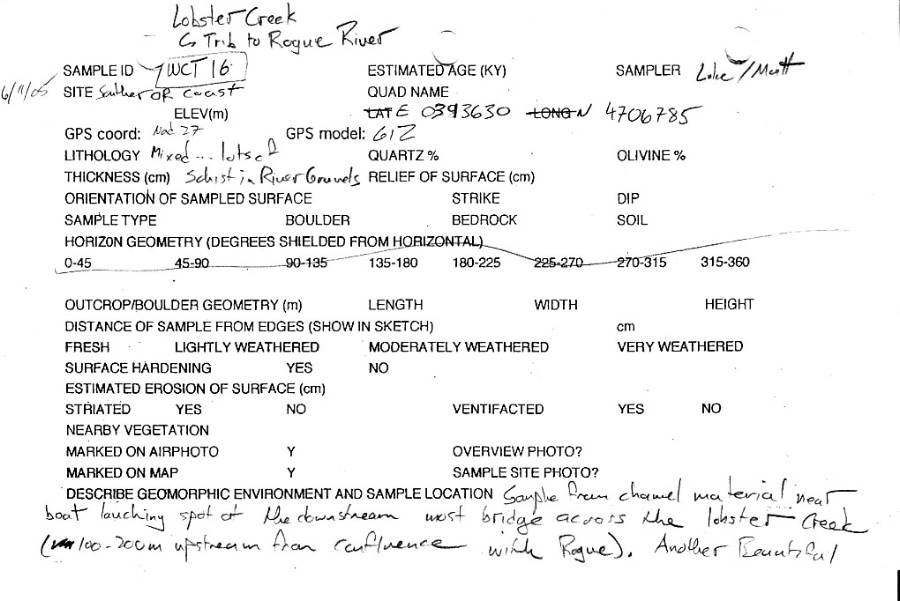 Lobster Creek
↳ Trib to Rogue River
SAMPLE ID WCT 16 ESTIMATED AGE (KY) SAMPLER Luke/Matt
6/11/05 SITE Souther OR coast QUAD NAME
ELEV(m) LAT E 0393630 LONG N 4706785
GPS coord: Nad 27 GPS model: 61Z
LITHOLOGY Mixed... lots of QUARTZ % OLIVINE %
THICKNESS (cm) Schist in River Gravels RELIEF OF SURFACE (cm)
ORIENTATION OF SAMPLED SURFACE STRIKE DIP
SAMPLE TYPE BOULDER BEDROCK SOIL
HORIZON GEOMETRY (DEGREES SHIELDED FROM HORIZONTAL)
0-45 45-90 90-135 135-180 180-225 225-270 270-315 315-360
OUTCROP/BOULDER GEOMETRY (m) LENGTH WIDTH HEIGHT
DISTANCE OF SAMPLE FROM EDGES (SHOW IN SKETCH) cm
FRESH LIGHTLY WEATHERED MODERATELY WEATHERED VERY WEATHERED
SURFACE HARDENING YES NO
ESTIMATED EROSION OF SURFACE (cm)
STRIATED YES NO VENTIFACTED YES NO
NEARBY VEGETATION
MARKED ON AIRPHOTO Y OVERVIEW PHOTO?
MARKED ON MAP Y SAMPLE SITE PHOTO?
DESCRIBE GEOMORPHIC ENVIRONMENT AND SAMPLE LOCATION Sample from channel material near
boat lauching spot at the downstream most bridge across the lobster Creek
(100-200m upstream from confluence with Rogue). Another Beautiful